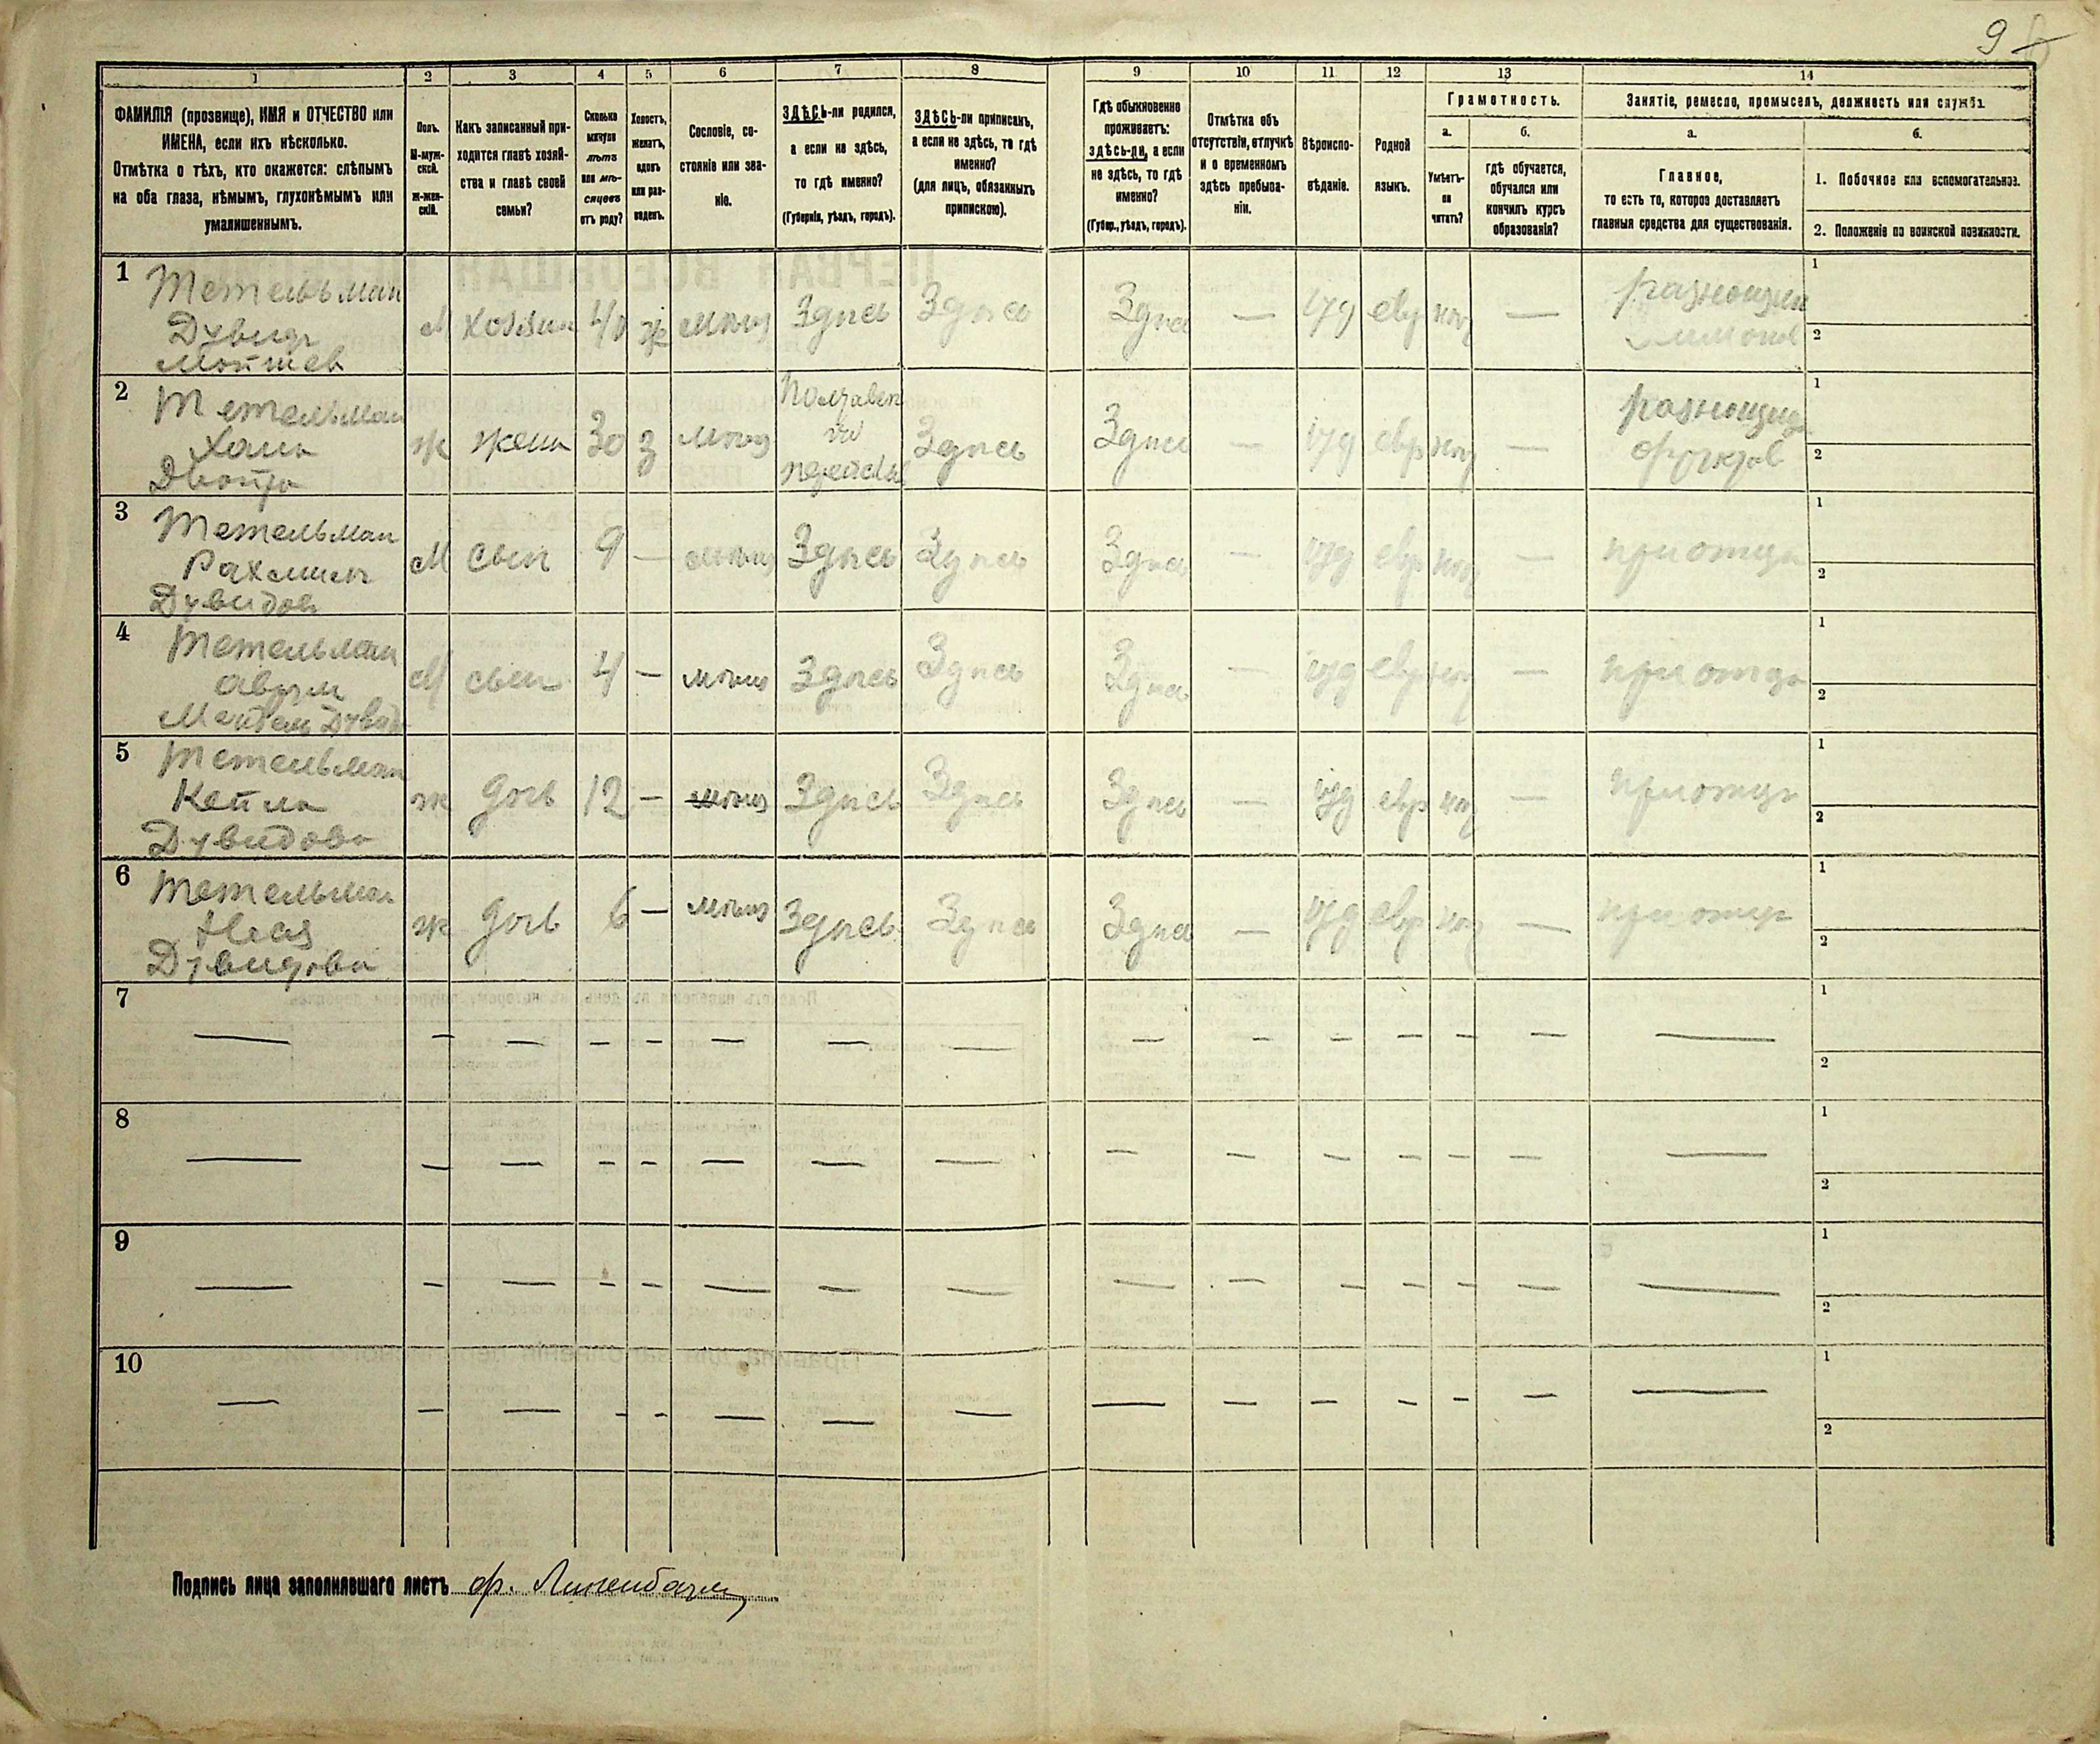 9
1 2 3 4 5 6 7 8 9 10 11 12 13 14
ФАМИЛІЯ (прозвище), ИМЯ и ОТЧЕСТВО или
ИМЕНА, если ихъ нѣсколько.
Отмѣтка о тѣхъ, кто окажется: слѣпымъ
на оба глаза, нѣмымъ, глухонѣмымъ или
умалишеннымъ.
Полъ.
М-муж-
ской.
ж-жен-
скій.
Какъ записанный при-
ходится главѣ хозяй-
ства и главѣ своей
семьи?
Сколько
минуло
лѣтъ
или мѣ-
сяцевъ
отъ роду?
Холостъ,
женатъ,
вдовъ
или раз-
веденъ.
Сословіе, со-
стояніе или зва-
ніе.
ЗДѢСЬ-ли родился,
а если не здѣсь,
то гдѣ именно?
(Губернія, уѣздъ, городъ).
ЗДѢСЬ-ли приписанъ,
а если не здѣсь, то гдѣ
именно?
(для лицъ, обязанныхъ
припискою).
Гдѣ обыкновенно
проживаетъ:
здѣсь-ли, а если
не здѣсь, то гдѣ
именно?
(Губер., уѣздъ, городъ).
Отмѣтка объ
отсутствіи, отлучкѣ
и о временномъ
здѣсь пребыва-
ніи.
Вѣроиспо-
вѣданіе.
Родной
языкъ.
Грамотность.
а.
Умѣетъ-
ли
читать?
б.
гдѣ обучается,
обучался или
кончилъ курсъ
образованія?
Занятіе, ремесло, промыселъ, должность или служба.
а.
Главное,
то есть то, которое доставляетъ
главныя средства для существованія.
б.
1. Побочное или вспомогательное.
2. Положеніе по воинской повинности.
1
Тетельман
Дувидъ
Мойшев
М хозяин 40 ж мѣщ Здѣсь Здѣсь Здѣсь — іуд евр —
1
2
2
Тетельман
Хана
Двойра
ж жена 30 з мѣщ
Здѣсь Здѣсь — іуд евр —
1
2
3
Тетельман
Рахмил
Дувидов
М сын 9 — мѣщ Здѣсь Здѣсь Здѣсь — іуд евр — при отцѣ
1
2
4
Тетельман
Аврум
М сын 4 — мѣщ Здѣсь Здѣсь Здѣсь — іуд евр — при отцѣ
1
2
5
Тетельман
Кейла
Дувидова
ж дочь 12 — мѣщ Здѣсь Здѣсь Здѣсь — іуд евр — при отцѣ
1
2
6
Тетельман
Дувидова
ж дочь 6 — мѣщ Здѣсь Здѣсь Здѣсь — іуд евр — при отцѣ
1
2
7
— — — — — — — — — — — — — — —
1
2
8
— — — — — — — — — — — — — — —
1
2
9
— — — — — — — — — — — — — — —
1
2
10
— — — — — — — — — — — — — — —
1
2
Подпись лица заполнявшаго листъ